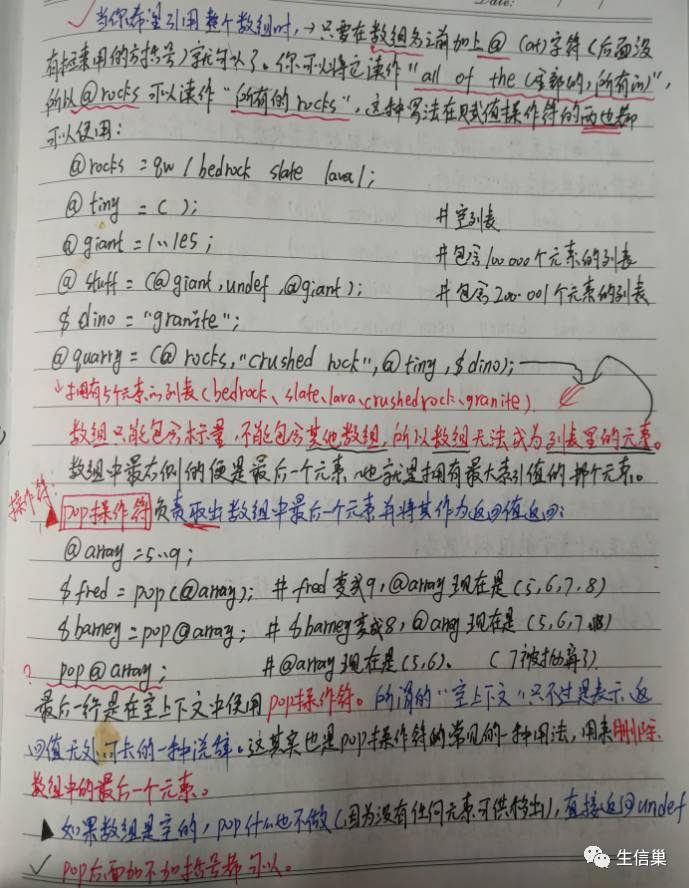 Date:
✓当你希望引用整个数组时,→只要在数组名之前加上@ (at)字符(后面没
有检索用的方括号)字就可以了。你可以将它读作"all of the (全部的,所有的)",
所以@rocks 可以读作"所有的rocks",这种写法在赋值操作符的两边都
可以使用:
@rocks = qw / bedrock slate lava/;
@tiny = ( ); #空列表
@giant = 1..1e5; #包含100 000个元素的列表
@stuff = (@giant, undef, @giant); #包含200.001个元素的列表
$dino = "granite";
@quarry = (@rocks, "crushed rock", @tiny, $dino);
↓拥有5个元素的列表(bedrock、slate、lava、crushed rock、granite)
数组只能包含标量,不能包含其他数组,所以数组无法成为列表里的元素。
数组中最右侧的便是最后一个元素,也就是拥有最大索引值的那个元素。
操作符:
▲pop操作符负责取出数组中最后一个元素并将其作为返回值返回:
@array = 5..9;
$fred = pop(@array); # fred变成9, @array现在是(5,6,7,8)
$barney = pop @array; # $barney变成8, @array现在是(5,6,7)
? pop @array; # @array现在是(5,6)。 (7被抛弃了)
最后一行是在空上下文中使用pop操作符。所谓的"空上下文"只不过是表示返
回值无处可去的一种说辞。这其实也是pop操作符的常见的一种用法,用来删除
数组中的最后一个元素。
▲如果数组是空的,pop什么也不做(因为没有任何元素可供移出),直接返回undef
✓ pop后面加不加括号都可以。
生信巢